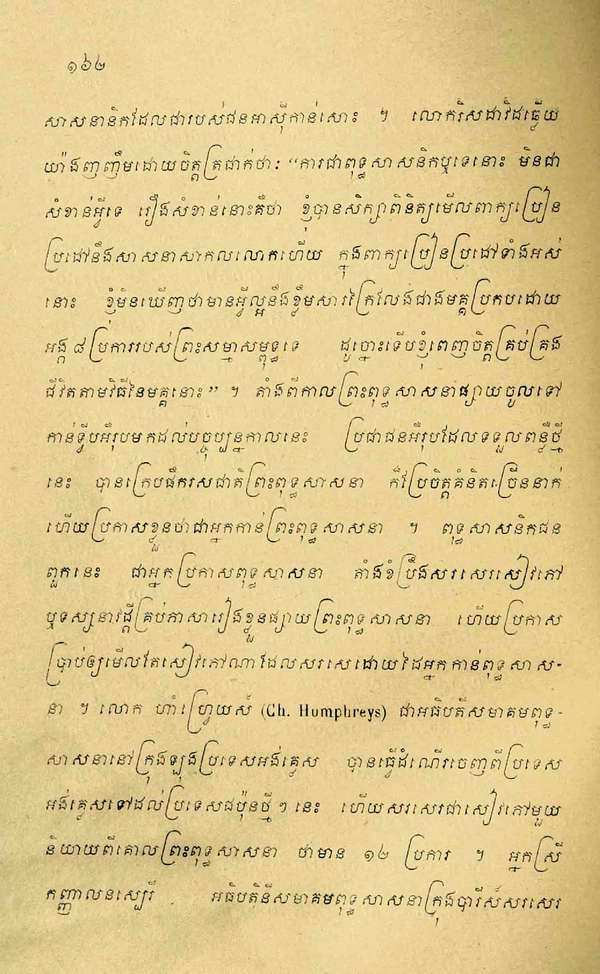 ១៦២
សាសនានិកដែលជារបស់ជនអាស៊ីកាន់សោះ ។ លោករិសដាវិដធ្លើយ
យ៉ាងញញឹមដោយចិត្តត្រជាក់ថា: “ការជាពុទ្ធសាសនិកឬទេនោះ មិនជា
សំខាន់អ្វីទេ រឿងសំខាន់នោះគឺថា ខ្ញុំបានសិក្សាពិនិត្យមើលពាក្យប្រៀន
ប្រដៅនឹងសាសនាសាកលលោកហើយ ក្នុងពាក្យប្រៀនប្រដៅទាំងអស់
នោះ ខ្ញុំមិនឃើញថាមានអ្វីល្អនឹងខ្លឹមសារវក្រៃលែងជាងមគ្គប្រកបដោយ
អង្គ ៨ ប្រការរបស់ព្រះសម្មាសម្ពុទ្ធទេ ដូច្នោះទើបខ្ញុំពេញចិត្តគ្រប់គ្រង
ជីវិតតាមវិធីនៃមគ្គនោះ” ។ តាំងពីកាលព្រះពុទ្ធសាសនាផ្សាយចូលទៅ
កាន់ទ្វីបអឺរុបមកដល់បច្ចុប្បន្នកាលនេះ ប្រជាជនអឺរុបដែលទទួលពន្លឺថ្មី
នេះ បានក្រេបផឹករសជាតិព្រះពុទ្ធសាសនា ក៏ប្រែចិត្តគំនិតច្រើននាក់
ហើយប្រកាសខ្លួនថាជាអ្នកកាន់ព្រះពុទ្ធសាសនា ។ ពុទ្ធសាសនិកជន
ពួកនេះ ជាអ្នកប្រកាសពុទ្ធសាសនា តាំងខំប្រឹងសរសេរសៀវភៅ
ឬទស្សនាវដ្ដីគ្រប់ភាសារៀងខ្លួនផ្សាយព្រះពុទ្ធសាសនា ហើយប្រកាស
ប្រាប់ឲ្យមើលតែសៀវភៅណាដែលសរសេដោយដៃអ្នកកាន់ពុទ្ធសាស-
នា ។ លោក ហាំហ្វ្រេយស៍ (Ch. Humphreys) ជាអធិបតីសមាគមពុទ្ធ-
សាសនានៅក្រុងឡុងប្រទេសអង់គ្លេស បានធ្វើដំណើរចេញពីប្រទេស
អង់គ្លេសទៅដល់ប្រទេសជប៉ុនថ្មី ៗ នេះ ហើយសរសេរជាសៀវភៅមួយ
និយាយពីគោលព្រះពុទ្ធសាសនា ថាមាន ១២ ប្រការ ។ អ្នកស្រី
កញ្ញាលនស្បេរី អធិបតិនីសមាគមពុទ្ធសាសនាក្រុងប៉ារីស៍សរសេរ